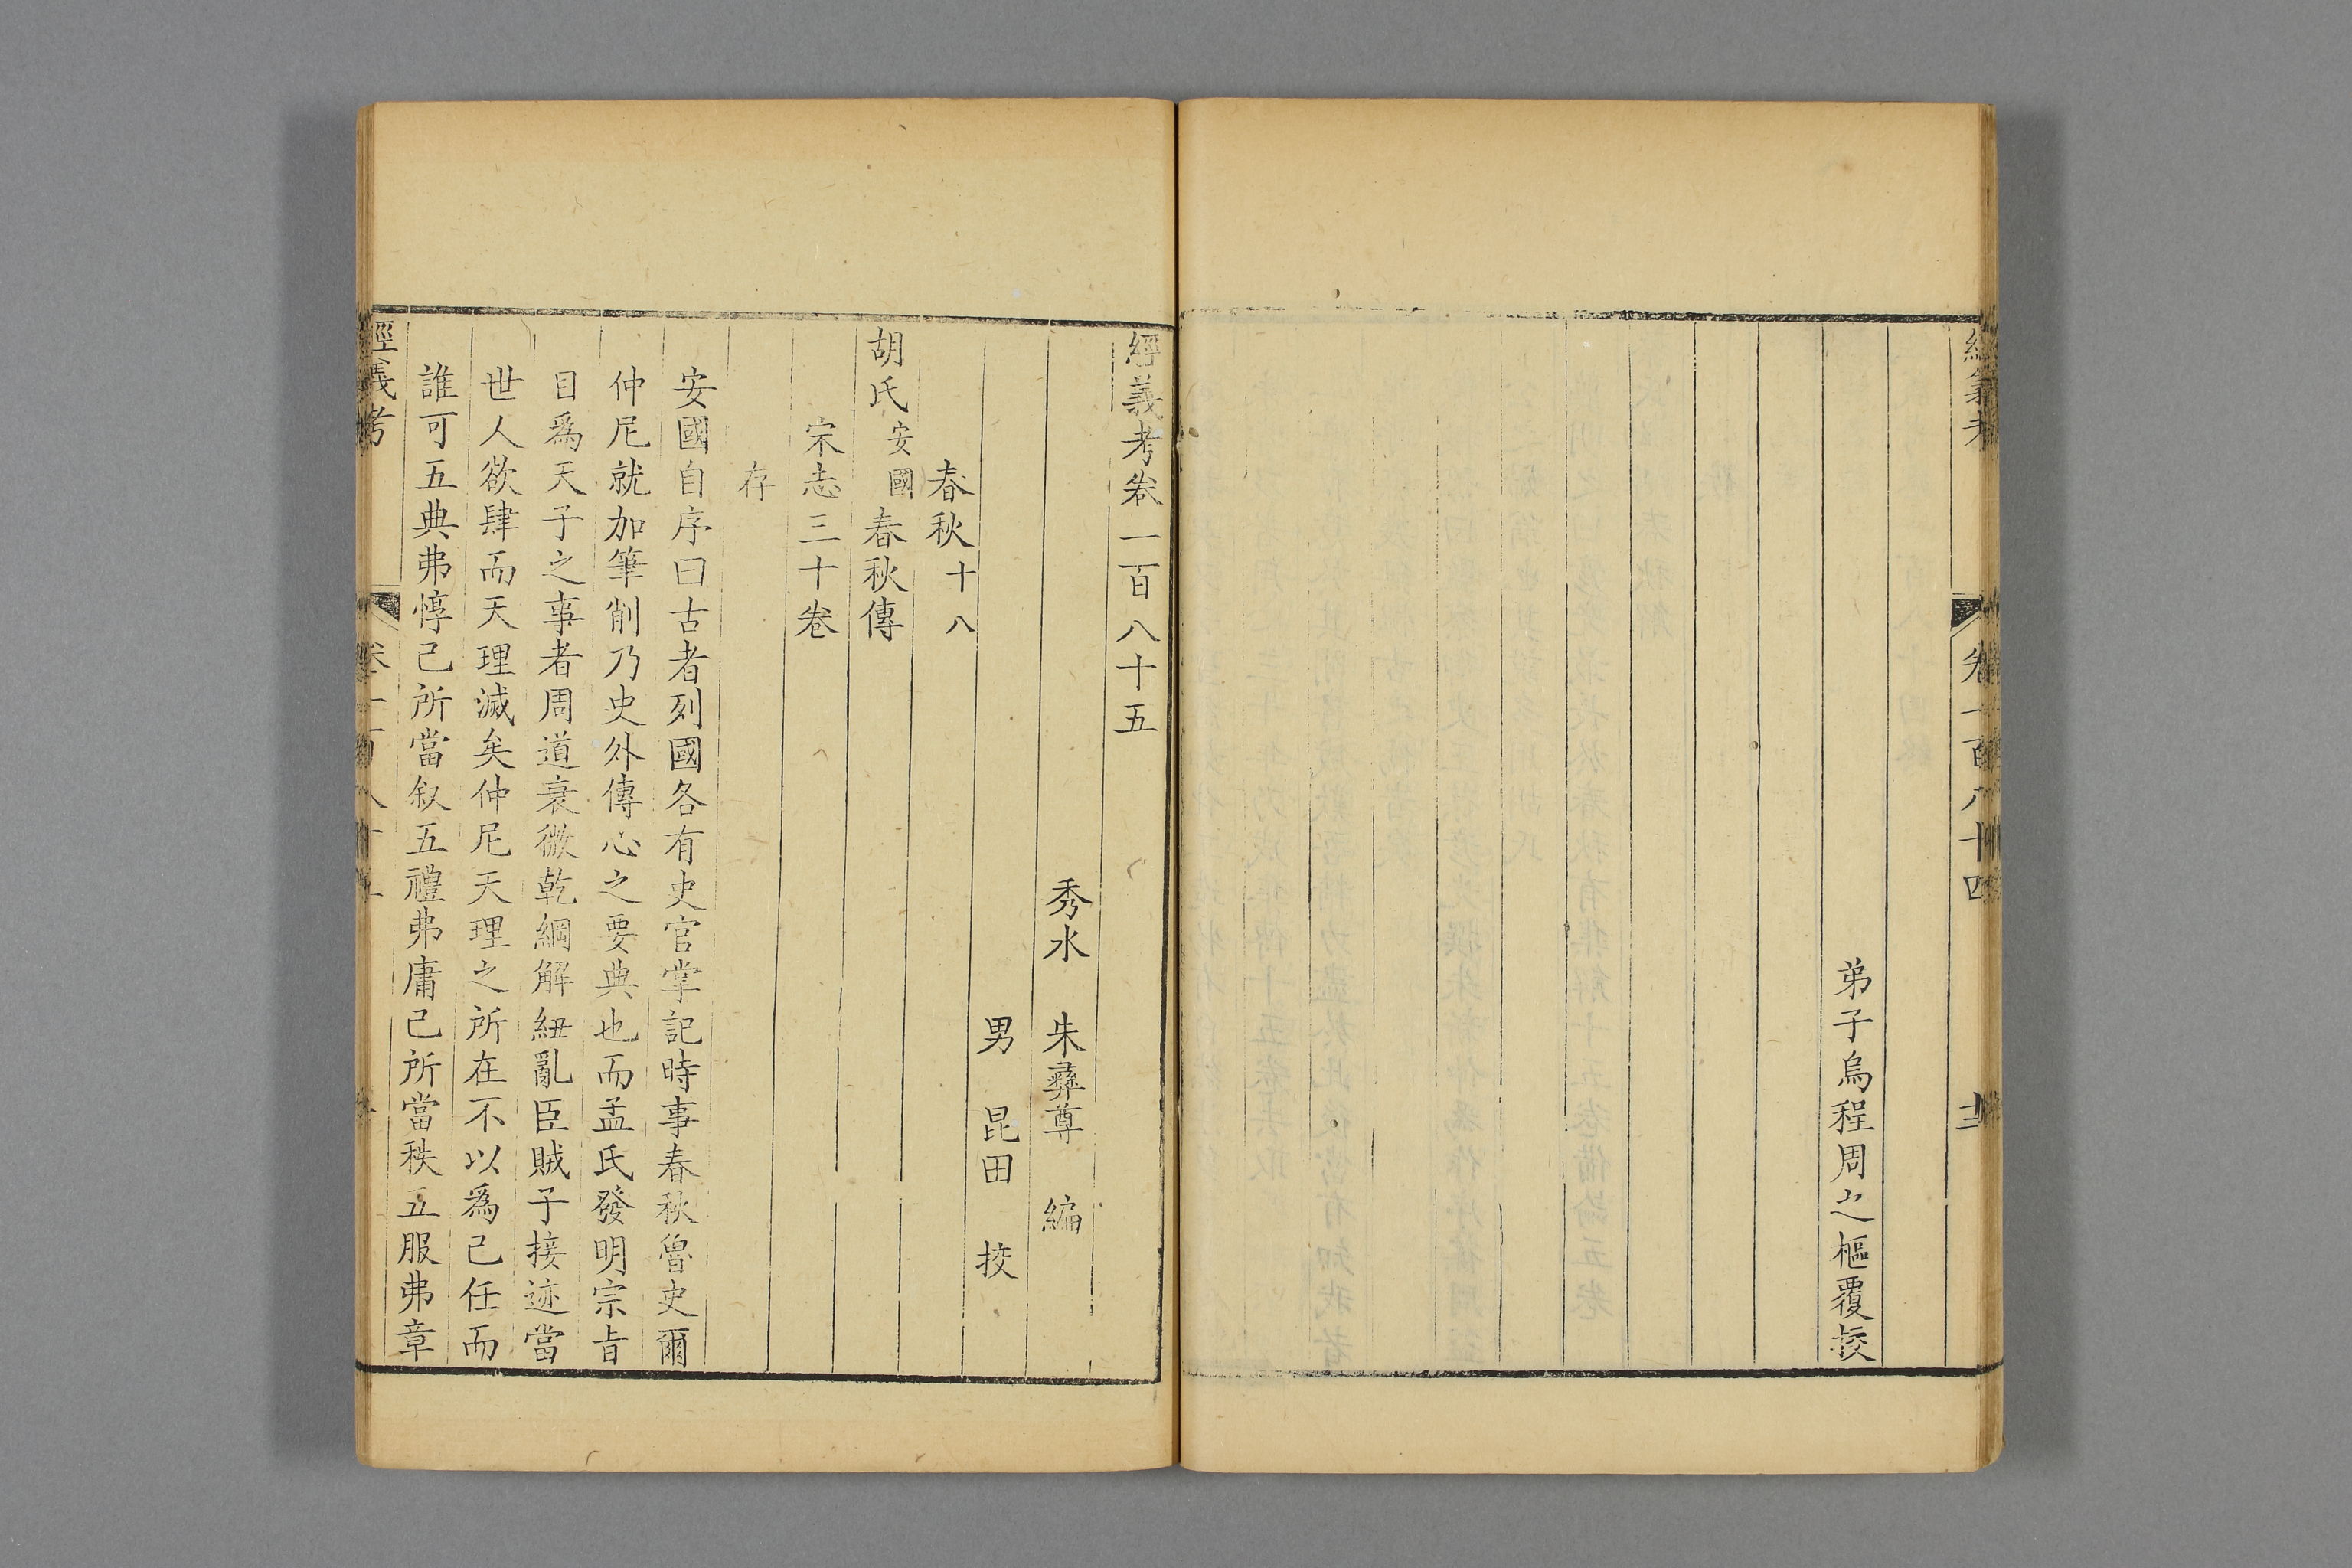 經義考
卷一百八十四
弟子烏程周之樞覆挍
經義考卷一百八十五
秀水 朱彝尊 編
男 昆田 挍
春秋十八
胡氏安國春秋傳
宋志三十卷
存
安國自序曰古者列國各有史官掌記時事春秋魯史爾
仲尼就加筆削乃史外傳心之要典也而孟氏發明宗旨
目爲天子之事者周道衰微乾綱解紐亂臣賊子接迹當
世人欲肆而天理滅矣仲尼天理之所在不以爲己任而
誰可五典弗惇己所當叙五禮弗庸己所當秩五服弗章
經義考
卷一百八十五